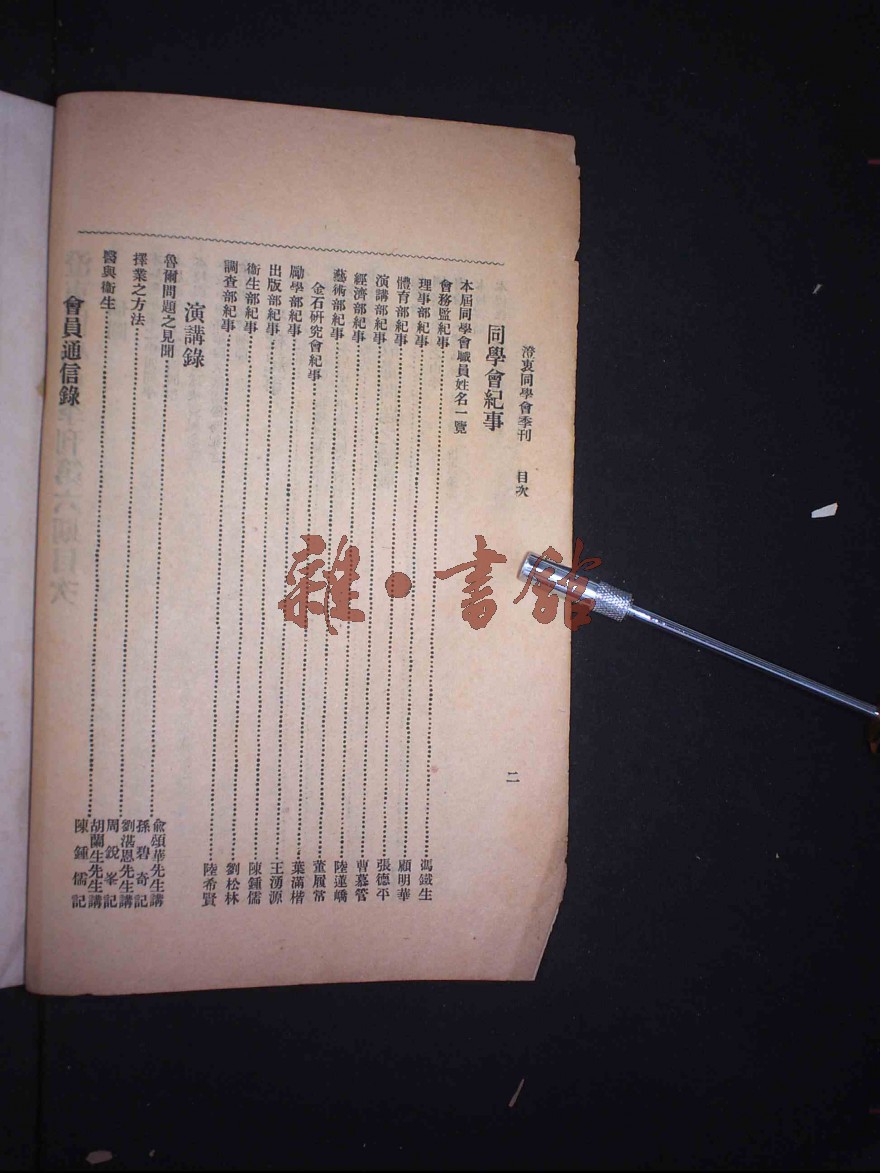 澄衷同學會季刊　目次　二
同學會紀事
本屆同學會職員姓名一覽
會務監紀事……馮鐵生
理事部紀事……顧明華
體育部紀事……張德平
演講部紀事……曹慕管
經濟部紀事……陸蓮嶠
藝術部紀事……董履常
金石研究會紀事……葉滿楷
勵學部紀事……王湧源
出版部紀事……陳鍾儒
衞生部紀事……劉松林
調查部紀事……陸希賢
演講錄
魯爾問題之見聞……俞頌華先生講
孫碧奇記
擇業之方法……劉湛恩先生講
周銳峯記
醫與衞生……胡蘭生先生講
陳鍾儒記
會員通信錄
雜·書館